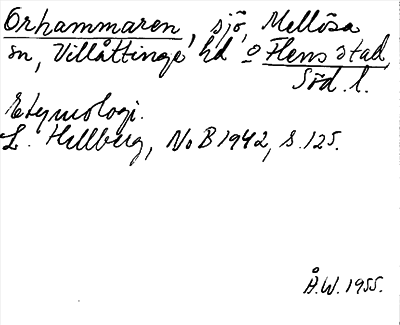 Orhammaren, sjö, Mellösa
sn, Villåttinge hd o Flens stad,
Söd. l.
Etymologi.
L. Hellberg, NoB 1942, s. 125.
Å.W. 1955.